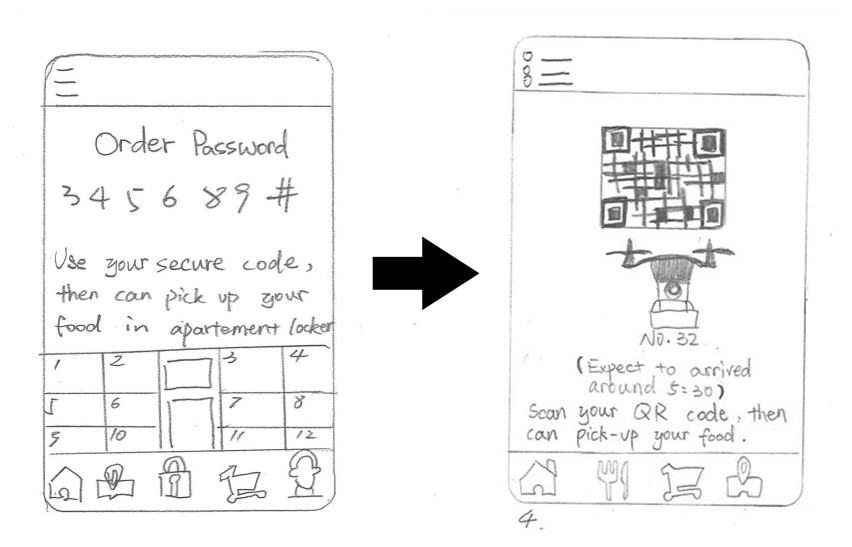 Order Password
3 4 5 6 8 9 #
Use your secure code,
then can pick up your
food in apartement locker
1 2 3 4
5 6 7 8
9 10 11 12
No. 32
(Expect to arrived
around 5:30)
Scan your QR code, then
can pick-up your food.
4.